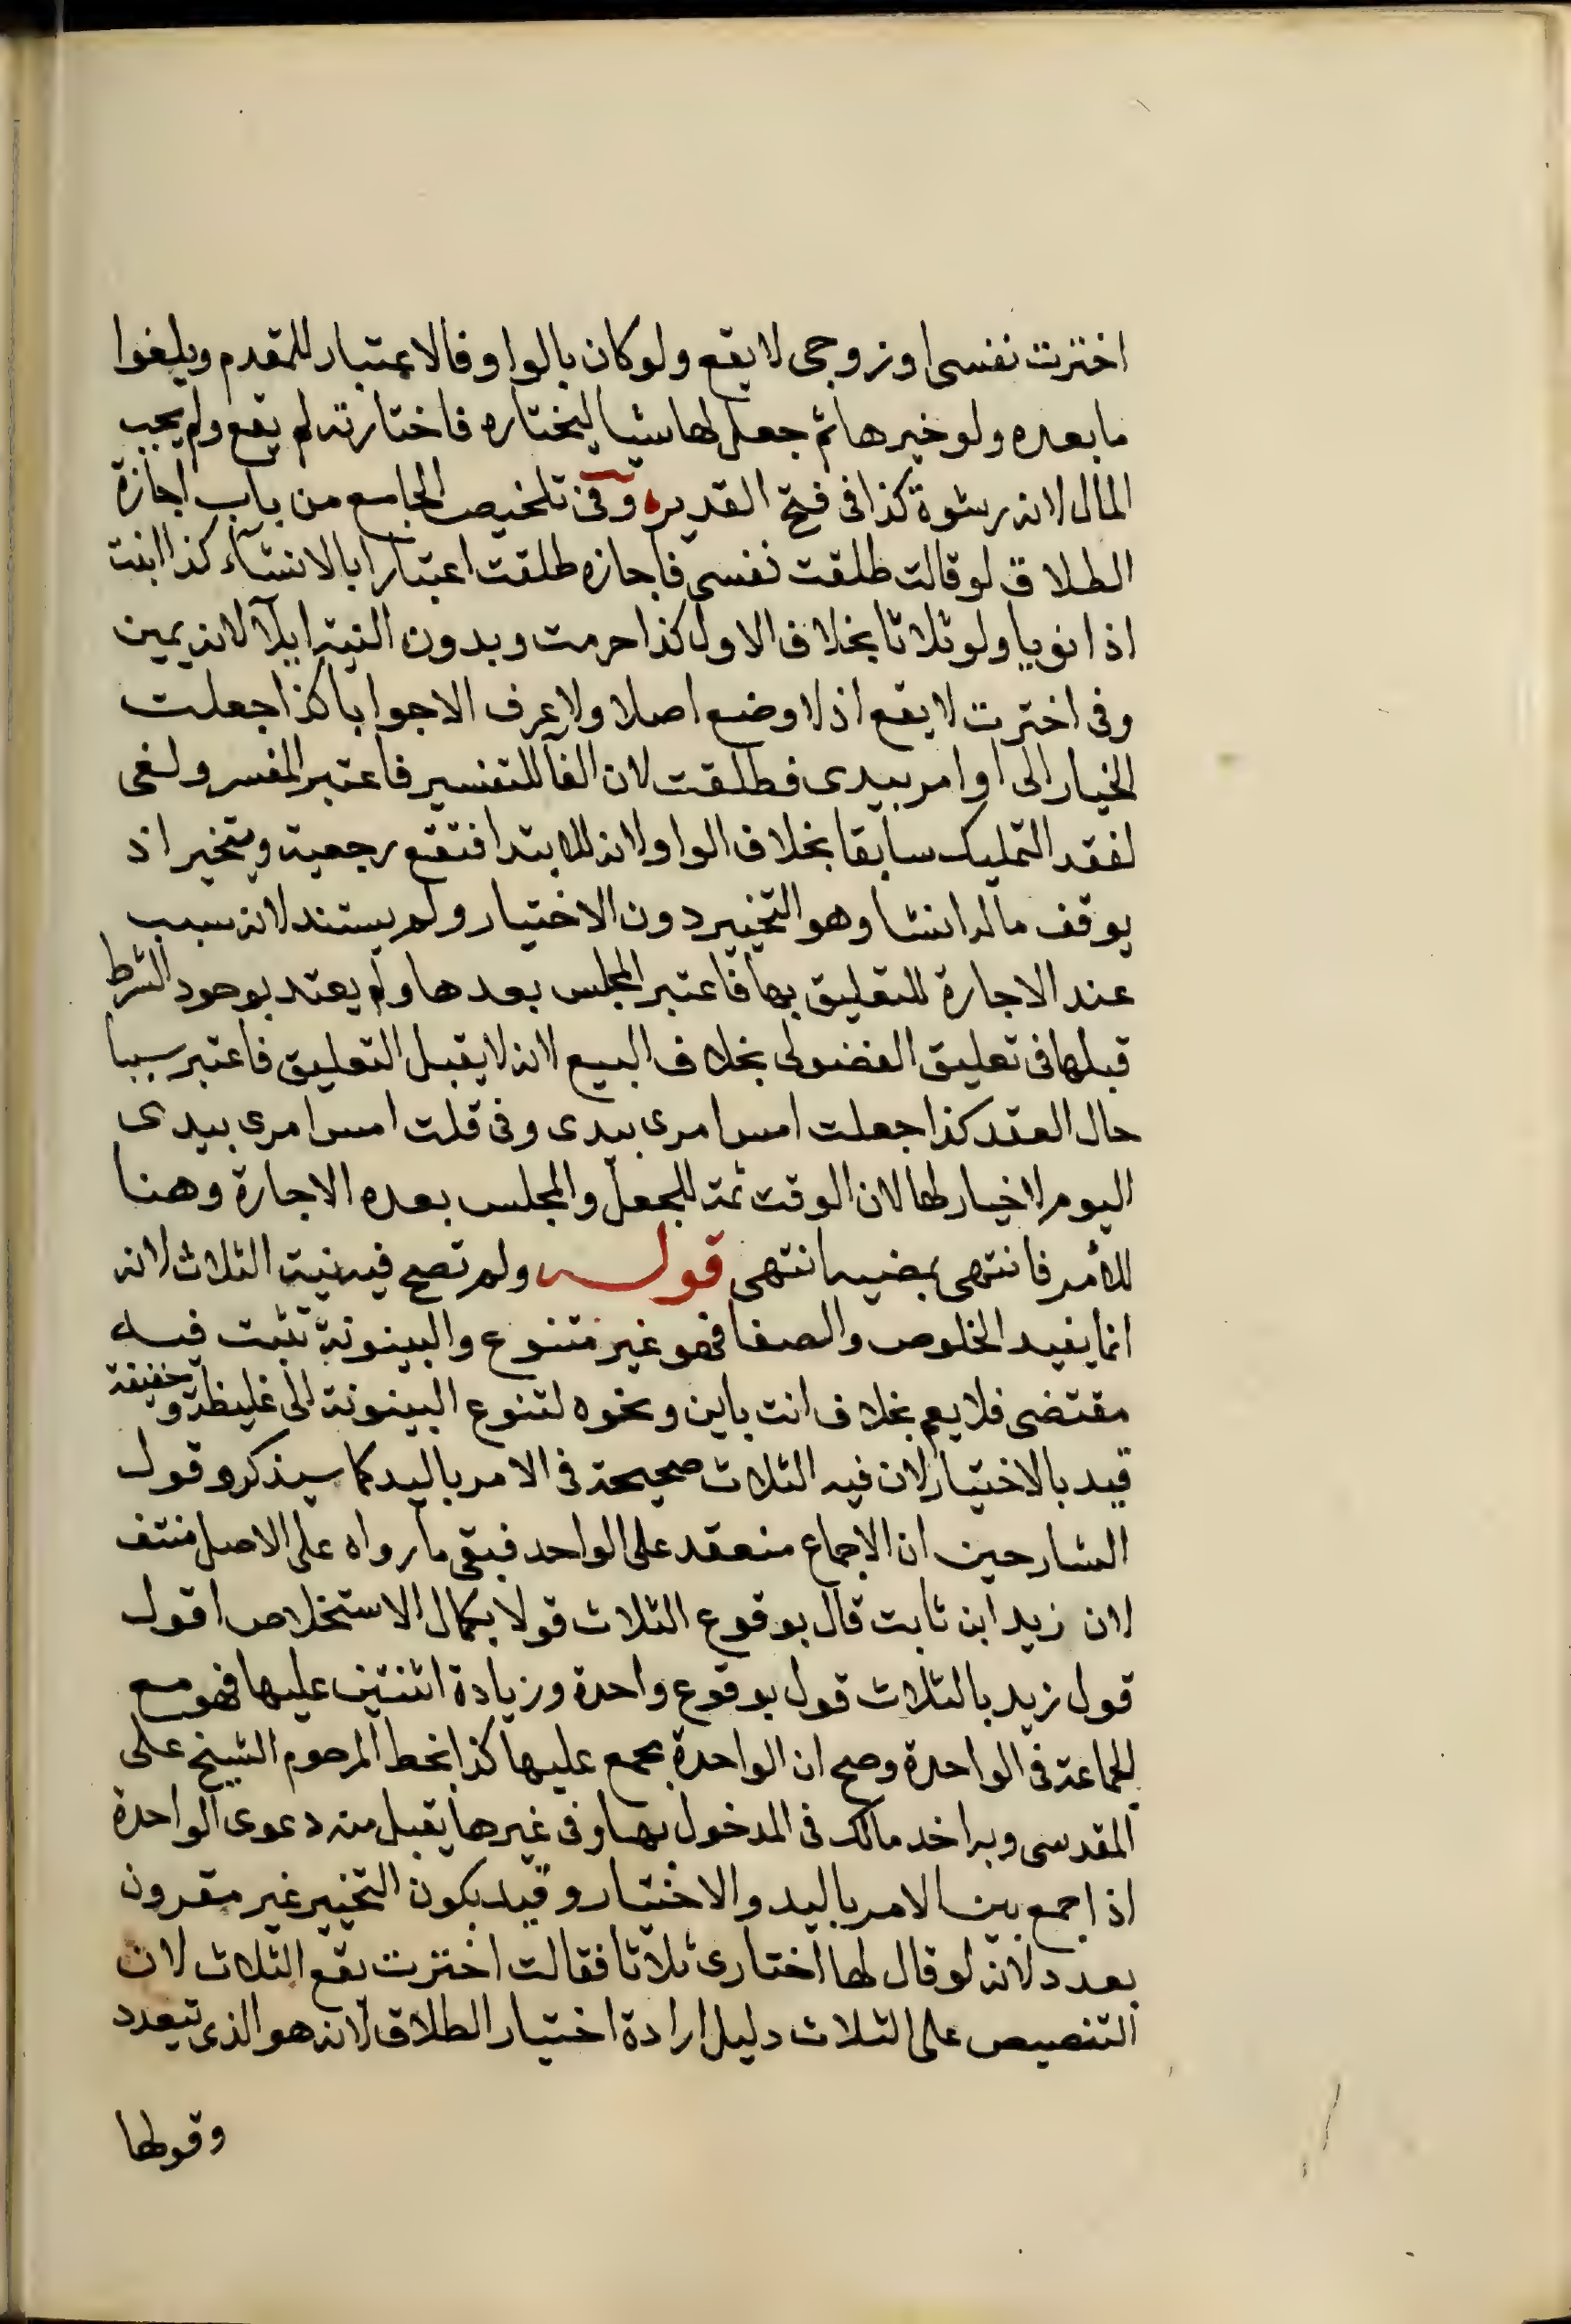 اخترت نفسى او زوجى لا يقع ولو كان بالواو فالاعتبار للمقدم ويلغوا
ما بعده ولو خيرها ثم جعل لها شيا ليختاره فاختارته لم يقع ولم يجب
المال لانه رشوة كذا فى فتح القدير وفى تلخيص الجامع من باب اجازة
الطلاق لو قالت طلقت نفسى فاجازه طلقت اعتبارا بالانشاء كذا ابنت
اذا نويا ولو ثلاثا بخلاف الاول كذا حرمت وبدون النية ايلآ لانه يمين
وفى اخترت لا يقع اذ لا وضع اصلا ولا عرف الاجوابا كذا جعلت
الخيار الى او امر بيدى فطلقت لان الفآ للتفسير فاعتبر المفسر ولغى
لفقد التمليك سابقا بخلاف الواو لانه للابتدا فتقع رجعية ويتخير اذ
يوقف ماله انشا وهو التخيير دون الاختيار ولم يستند لانه سبب
عند الاجازة للتعليق بها فاعتبر المجلس بعدها ولم يعتد بوجود الشرط
قبلها فى تعليق الفضولى بخلاف البيع لانه لا يقبل التعليق فاعتبر سببا
حال العقد كذا جعلت امس امرى بيدى وفى قلت امس امرى بيدى
اليوم لا خيار لها لان الوقت ثمة للجعل والمجلس بعده الاجازة وهنا
للامر فانتهى بمضيه انتهى قوله ولم تصح فيه نية الثلاث لانه
انما يفيد الخلوص والصفا فهو غير متنوع والبينونة تثبت فيه
مقتضى فلا يعم بخلاف انت باين ونحوه لتنوع البينونة الى غليظة وخفيفة
قيد بالاختيار لان فيه الثلاث صحيحة فى الامر باليد كما سيذكر وقول
الشارحين ان الاجماع منعقد على الواحد فبقى ما رواه على الاصل منتف
لان زيد ابن ثابت قال بوقوع الثلاث قولا بكمال الاستخلاص اقول
قول زيد بالثلاث قول بوقوع واحدة وزيادة اثنتين عليها فهو مع
الجماعة فى الواحدة وصح ان الواحدة مجمع عليها كذا بخط المرحوم الشيخ على
المقدسى وبه اخد مالك فى المدخول بها وفى غيرها يقبل منه دعوى الواحدة
اذا جمع بين الامر باليد والاختيار وقيد بكون التخيير غير مقرون
بعدد لانه لو قال لها اختارى ثلاثا فقالت اخترت يقع الثلاث لان
التنصيص على الثلاث دليل ارادة اختيار الطلاق لانه هو الذى يتعدد
وقولها